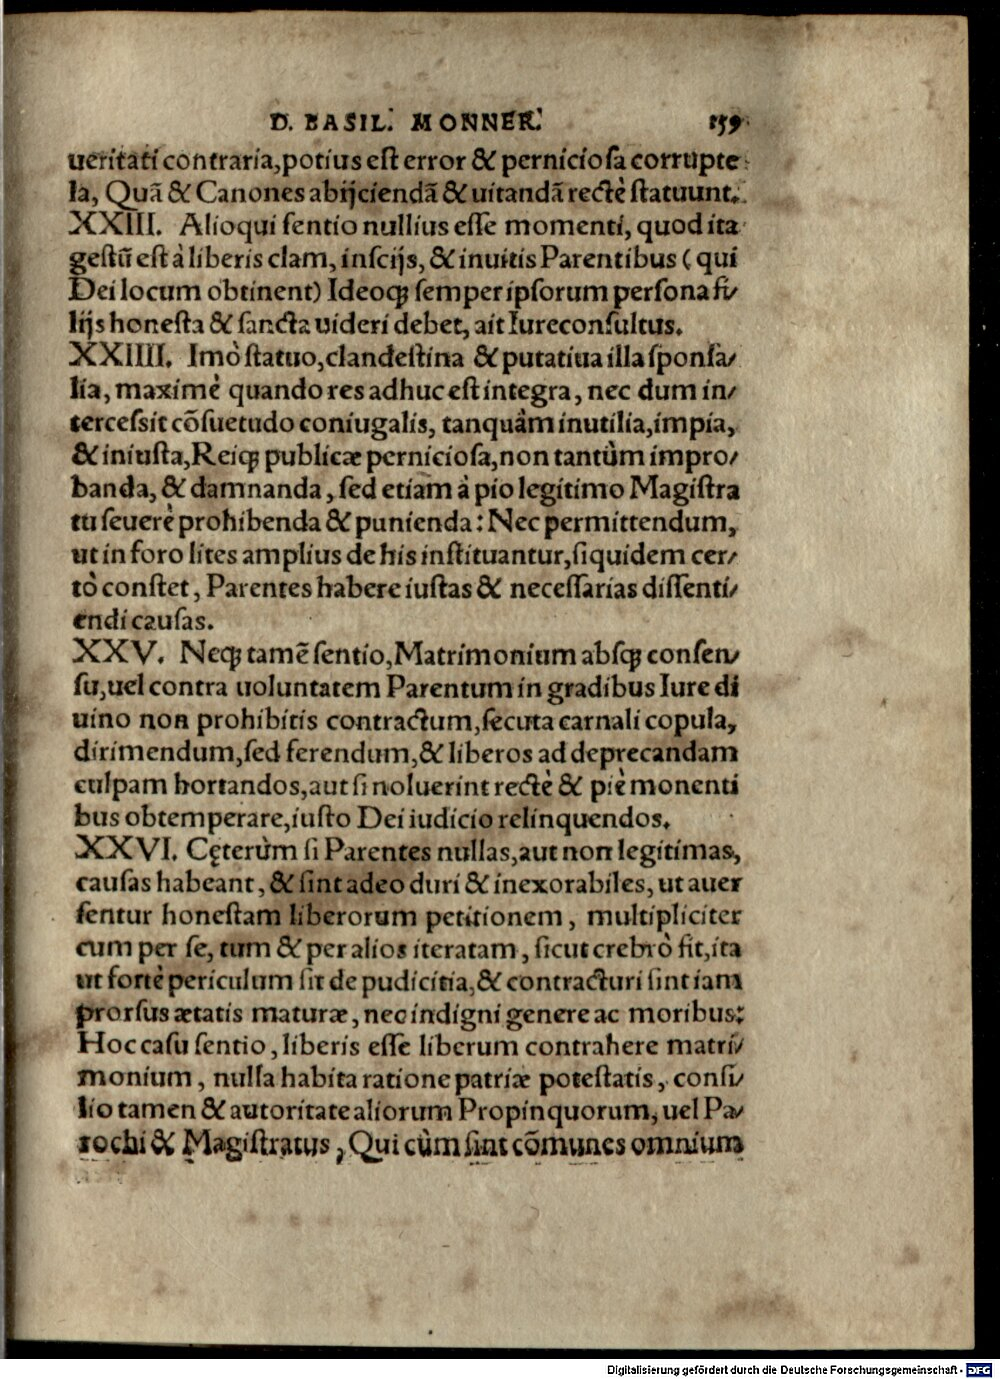 D. BASIL. MONNER. 159
ueritati contraria, potius est error & perniciosa corrupte
la, Quã & Canones abijciendã & uitandã rectè statuunt.
XXIII. Alioqui sentio nullius esse momenti, quod ita
gestũ est à liberis clam, inscijs, & inuitis Parentibus (qui
Dei locum obtinent) Ideoq́; semper ipsorum persona fi/
lijs honesta & sancta uideri debet, ait Iureconsultus.
XXIIII. Imò statuo, clandestina & putatiua illa sponsa/
lia, maximè quando res adhuc est integra, nec dum in/
tercessit cõsuetudo coniugalis, tanquàm inutilia, impia,
& iniusta, Reiq́; publicæ perniciosa, non tantùm impro/
banda, & damnanda, sed etiam à pio legitimo Magistra
tu seuerè prohibenda & punienda: Nec permittendum,
ut in foro lites amplius de his instituantur, siquidem cer/
tò constet, Parentes habere iustas & necessarias dissenti/
endi causas.
XXV. Neq́; tamẽ sentio, Matrimonium absq́; consen/
su, uel contra uoluntatem Parentum in gradibus Iure di
uino non prohibitis contractum, secuta carnali copula,
dirimendum, sed ferendum, & liberos ad deprecandam
culpam hortandos, aut si noluerint rectè & piè monenti
bus obtemperare, iusto Dei iudicio relinquendos.
XXVI. Cęterùm si Parentes nullas, aut non legitimas,
causas habeant, & sint adeo duri & inexorabiles, ut auer
sentur honestam liberorum petitionem, multipliciter
cum per se, tum & per alios iteratam, sicut crebrò fit, ita
ut fortè periculum sit de pudicitia, & contracturi sint iam
prorsus ætatis maturæ, nec indigni genere ac moribus:
Hoc casu sentio, liberis esse liberum contrahere matri/
monium, nulla habita ratione patriæ potestatis, consi/
lio tamen & autoritate aliorum Propinquorum, uel Pa/
rochi & Magistratus, Qui cùm sint cõmunes omnium
Digitalisierung gefördert durch die Deutsche Forschungsgemeinschaft - DFG